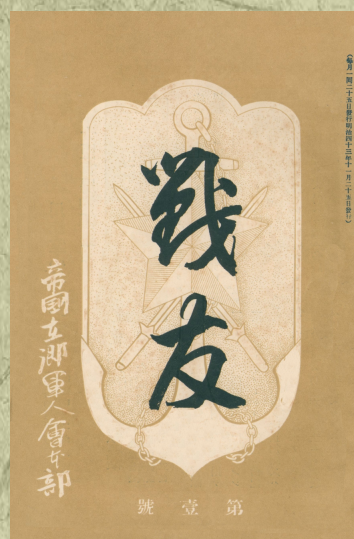 (毎月一回二十五日發行明治四十三年十一月二十五日發行)
戰友
帝國在郷軍人會本部
第壹號